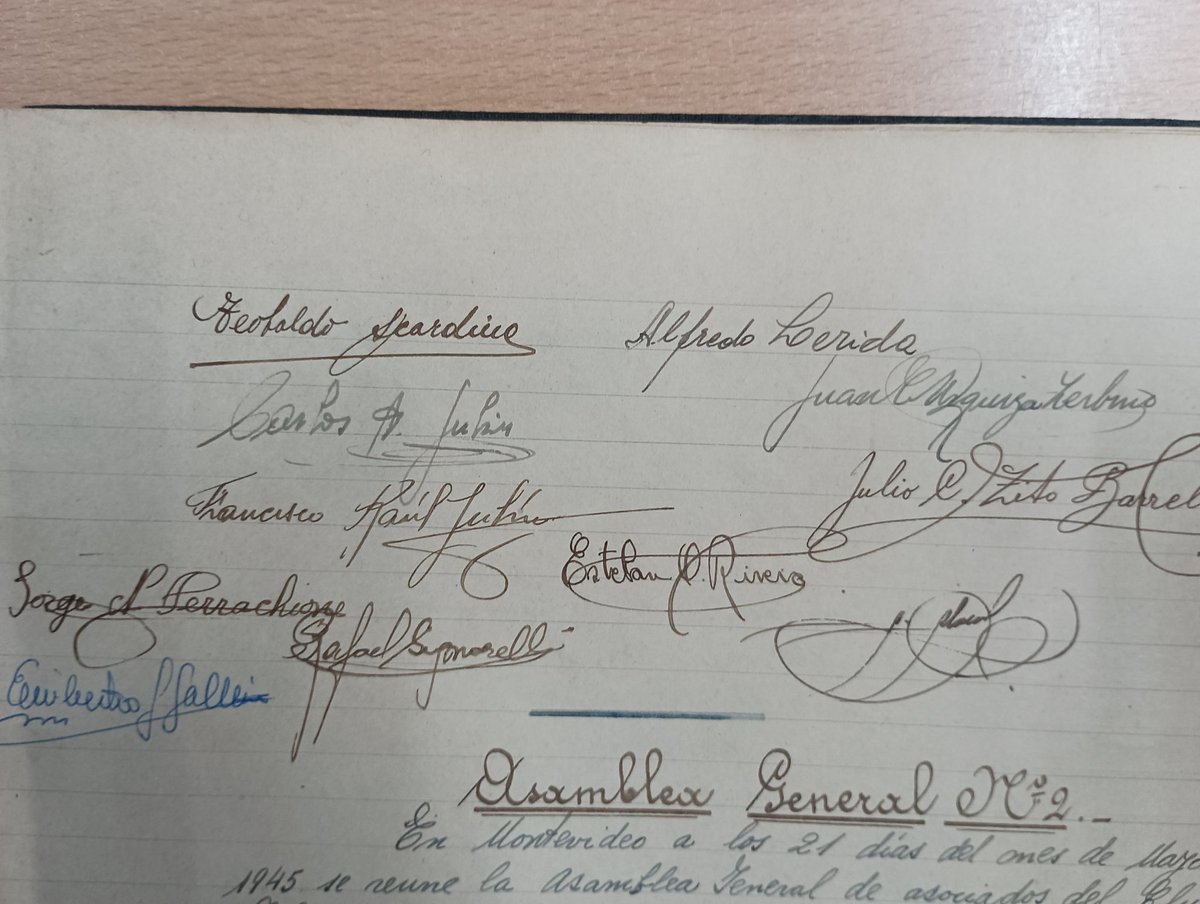 Teobaldo Scardino
Alfredo Lerida
Carlos A. Julin
Juan C. Urquiza Zerbino
Francisco Raúl Julín
Julio C. Zito Barrel
Esteban C. Rivero
Jorge A. Perrachione
Rafael Signorelli
Asamblea General Nº 2.-
En Montevideo a los 21 días del mes de Marz
1945 se reune la Asamblea General de asociados del Clu